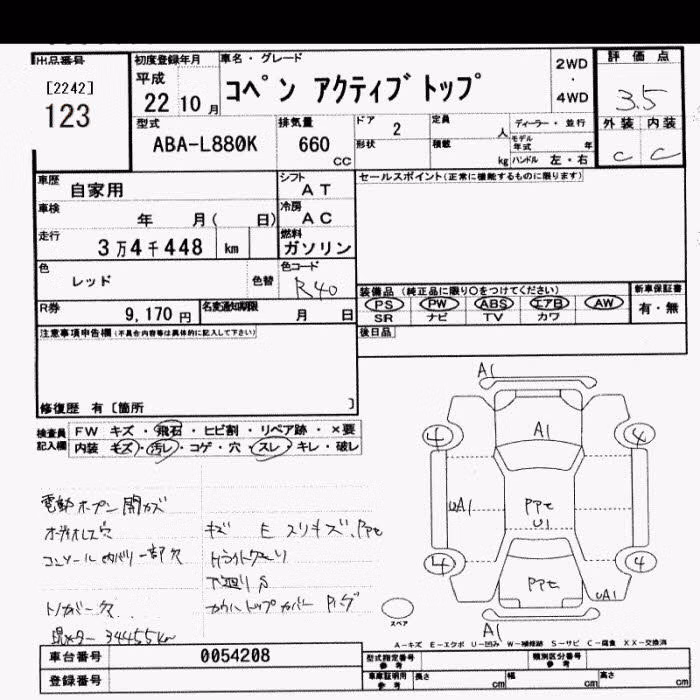 出品番号
[2242]
123
初度登録年月
平成
22 10 月
車名・グレード
コペン アクティブトップ
2WD
・
4WD
評価点
3.5
外装 内装
C C
型式
ABA-L880K
排気量
660
cc
ドア
2
形状
定員
人
積載
kg
ディーラー・並行
モデル年式 年
ハンドル 左・右
車歴
自家用
シフト
AT
セールスポイント(正常に機能するものに限ります)
車検
年 月( 日)
冷房
AC
走行
3万4千448 km
燃料
ガソリン
色
レッド
色替
色コード
R40
装備品 (純正品に限り○をつけてください)
PS PW ABS エアB AW
SR ナビ TV カワ
新車保証書
有・無
R券
9,170 円
名変通知期限
月 日
後日品
注意事項申告欄(不具合内容等は具体的に記入して下さい)
修復歴 有 [箇所 ]
検査員
記入欄
FW キズ・飛石・ヒビ割・リペア跡・×要
内装 キズ・汚レ・コゲ・穴・スレ・キレ・破レ
電動オープン開カズ
オーディオレス穴
キズ E スリキズ、PPセ
コンソール内バリ一部欠
下廻りS
A1
A1
4
4
UA1
PPセ
U1
4
4
PPセ
UA1
A1
スペア
34455km
A-キズ E-エクボ U-凹み W-補修跡 S-サビ C-腐食 XX-交換済
車台番号
0054208
型式指定番号
参考
類別区分番号
参考
登録番号
車庫証明用
参考
長さ cm
幅 cm
高さ cm